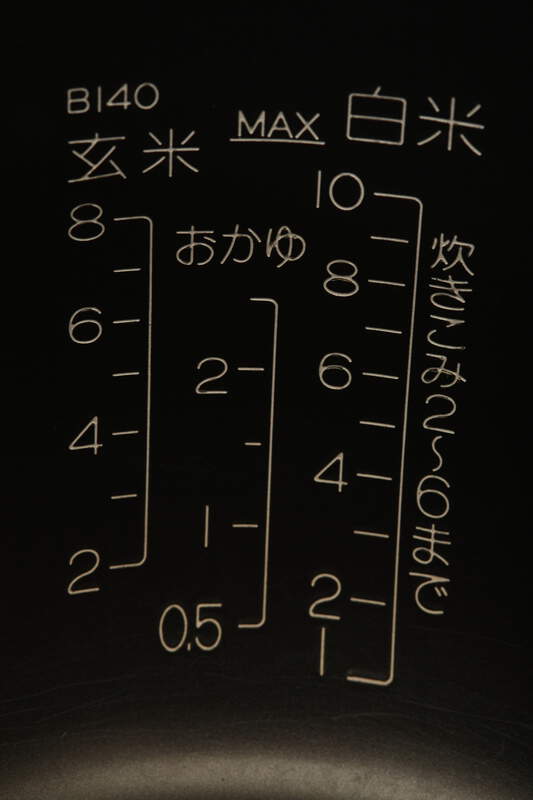 B140
玄米
8
6
4
2
おかゆ
2
1
0.5
MAX 白米
10
8
6
4
2
1
炊きこみ2〜6まで